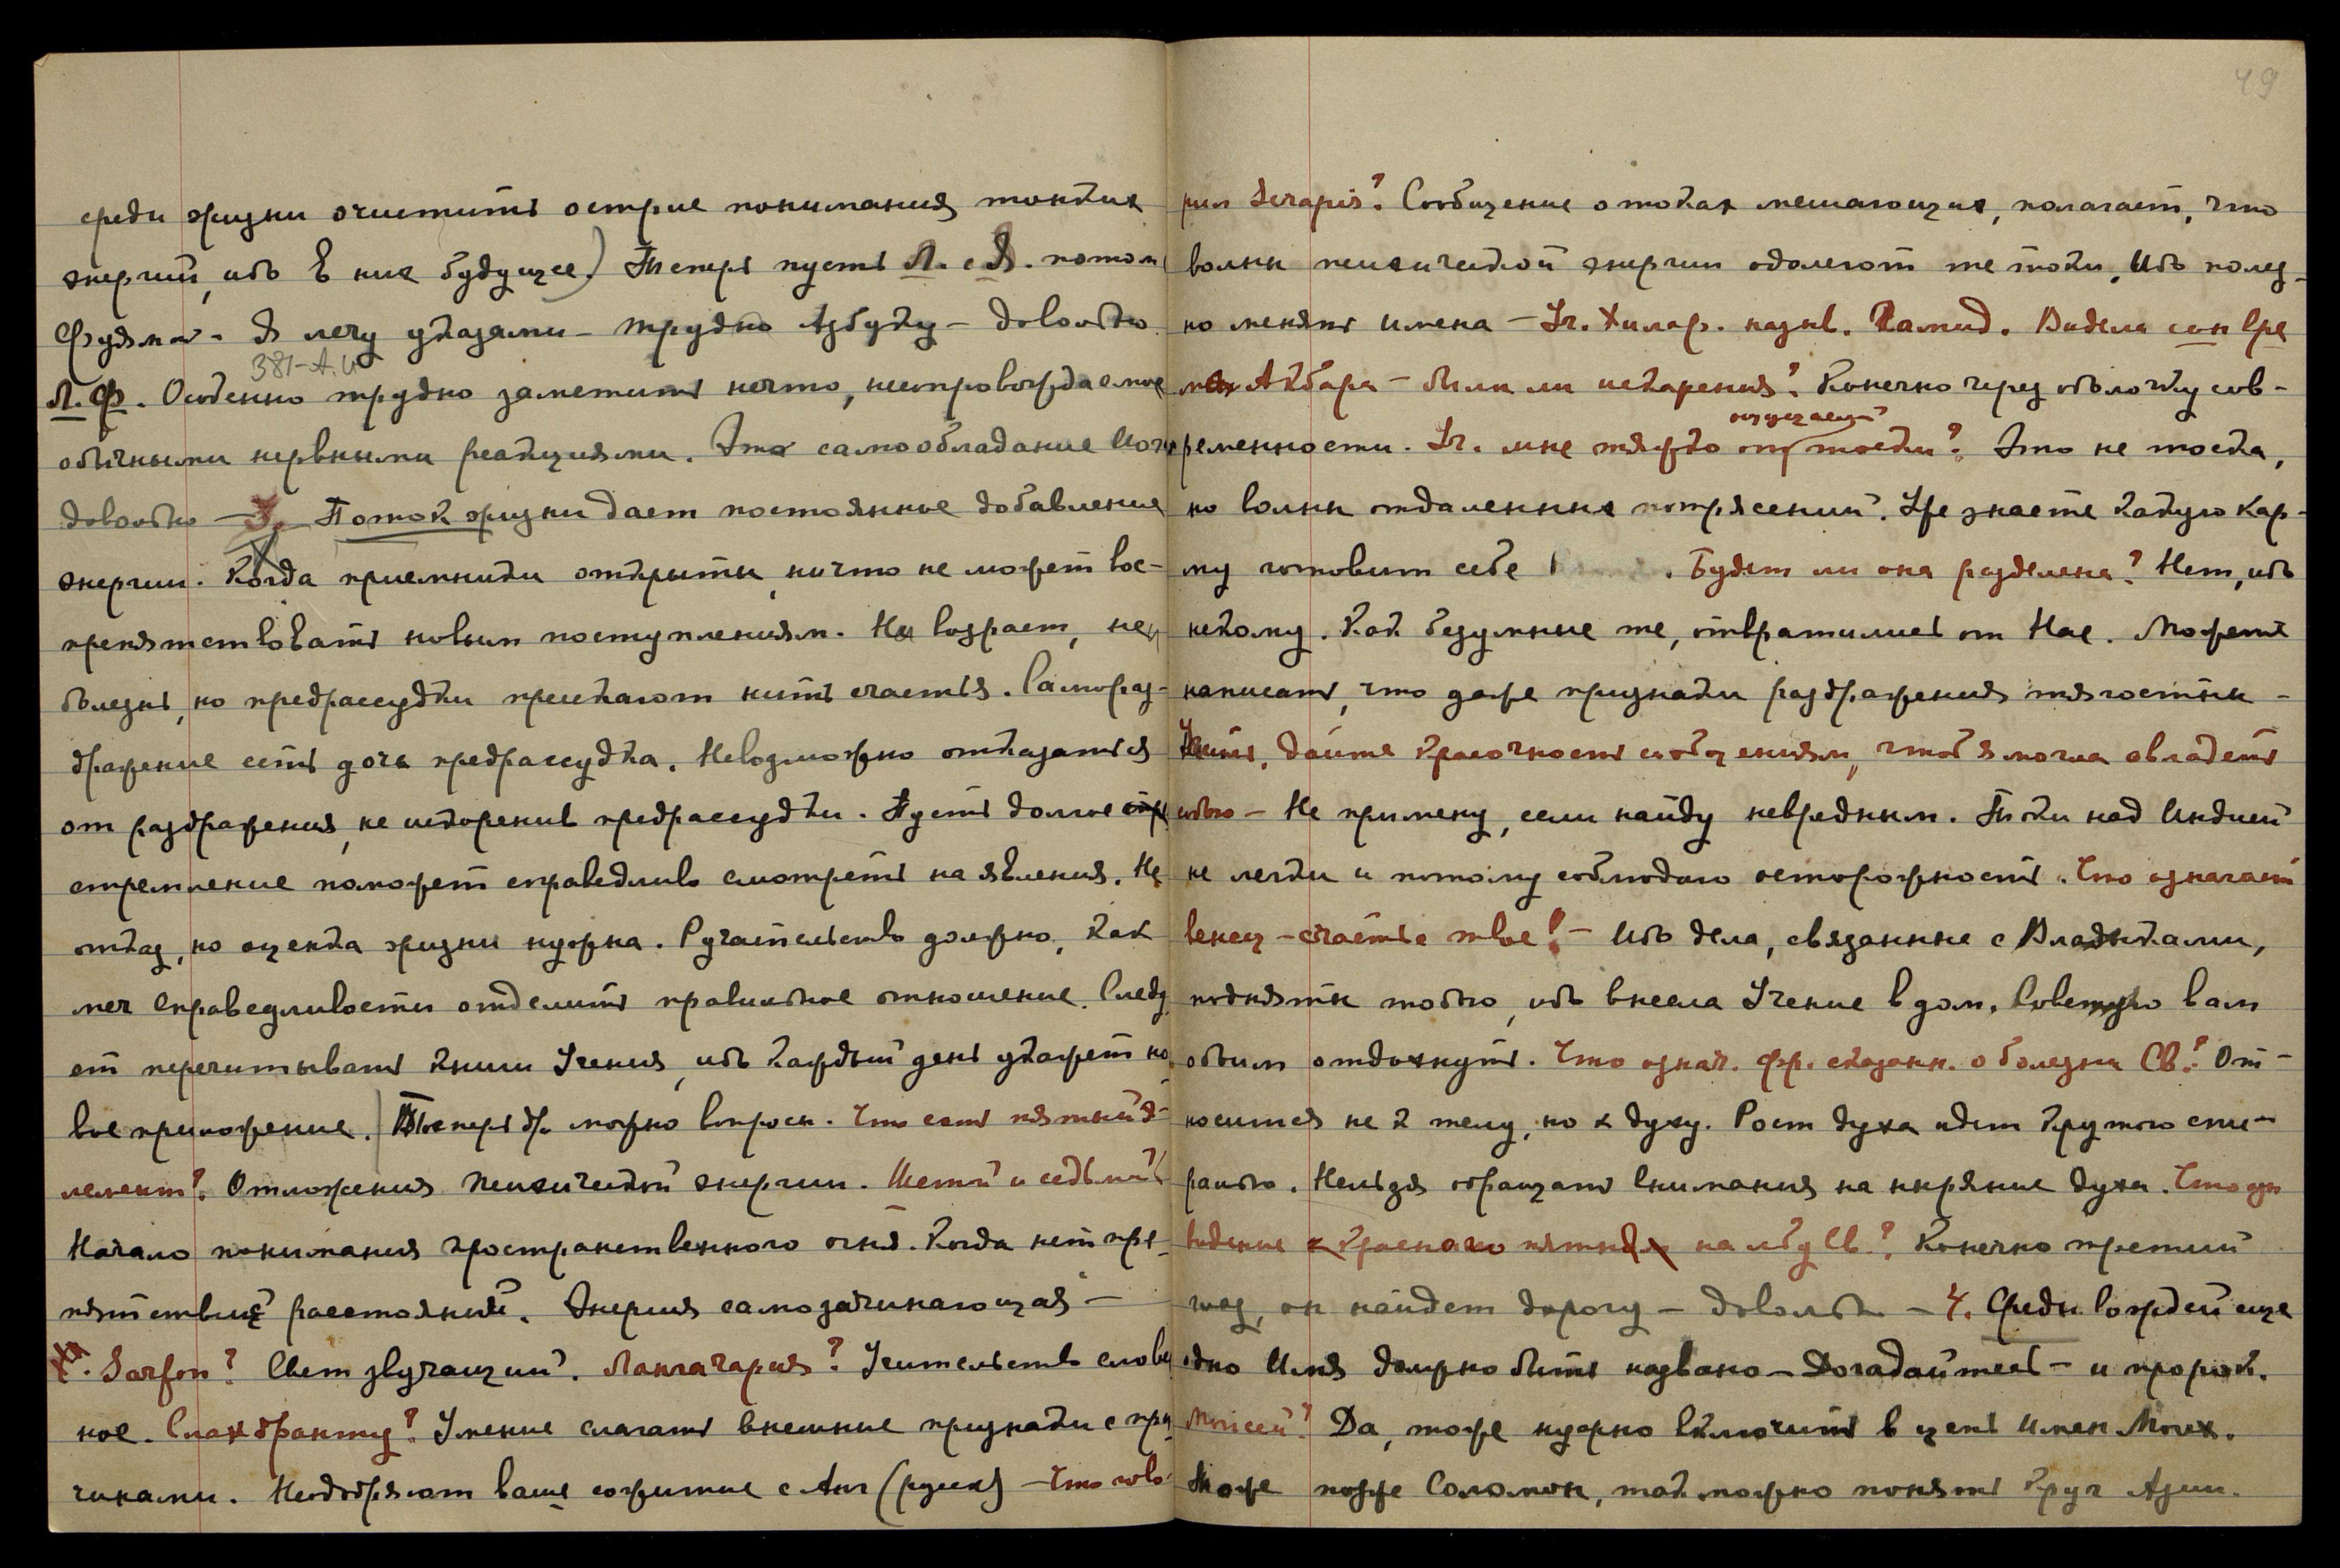 среди жизни очистить острие понимания тонких
энергий, ибо в них будущее) Теперь пусть Л. с Я. потом
Фуяма - Я лечу указами - трудно Азбуку - довольно
381-А.И
Л.Ф. Особенно трудно заметить нечто, несопровождаемое
обычными нервными реакциями. Это самообладание
довольно - 3. Поток жизни дает постоянное добавление
энергии. Когда приемники открыты, ничто не может вос-
препятствовать новым поступлениям. Не возраст, не
болезнь, но предрассудки пресекают нить счастья. Самораз-
дражение есть дочь предрассудка. Невозможно отказаться
от раздражения, не искоренив предрассудки. Пусть долгое
стремление поможет справедливо смотреть на явления. Не
отказ, но оценка жизни нужна. Ручательство должно, как
меч справедливости отделить правильное отношение. Следу
ет перечитывать книги Учения, ибо каждый день укажет но
вое приложение.) Теперь др. можно вопросы. Что есть пятый э-
лемент? Отложения психической энергии. Шестой и седьмой?
Начало понимания пространственного огня. Когда нет пре-
пятствий расстояний. Энергия самозачинающая -
Sarfon? Свет звучащий. Лангачария? Учительство словес
ное. Умение слагать внешние признаки с при
чинами. Неодобряют ваше сожитие с Анг (русск) - Что гово-
49
рил Serapis? Сообщение о токах мешающих, полагает, что
волны психической энергии одолеют те токи. Ибо полез-
но менять имена - Уч. Хилар. назыв. Рамид. Видела сон вре
мен Акбара - были ли искарения? Конечно через оболочку сов-
ощущаемой
ременности. Уч. мне тяжко от тоски? Это не тоска,
но волны отдаленных потрясений. Уже знаете какую кар-
му готовит себе . Будет ли она разделена? Нет, ибо
некому. Как безумные те, отвратились от Нас. Можете
написать, что даже признаки раздражения тягостны -
дайте красочность сообщениям, чтоб я могла овладеть
собою - Не примену, если найду невредным. Токи над Индией
не легки и потому соблюдаю осторожность. Что означает
венец - счастье твое? - Ибо дела, связанные с Владыками,
подняты тобою, ибо внесла Учение в дом. Советую вам
обоим отдохнуть. Что означ. фр. сказанн. о болезни Св.? От-
носится не к телу, но к духу. Рост духа идет крутою спи-
ралью. Нельзя обращать внимания на ныряние духа. Что оз
видение красного пятна на лбу Св.? Конечно третий
глаз, он найдет дорогу - довольно - 4. Среди вождей еще
одно Имя должно быть названо - Догадайтесь - и пророк.
Моисей? Да, тоже нужно включить в цепь Имен Моих.
Тоже позже Соломон, так можно понять круг Азии.